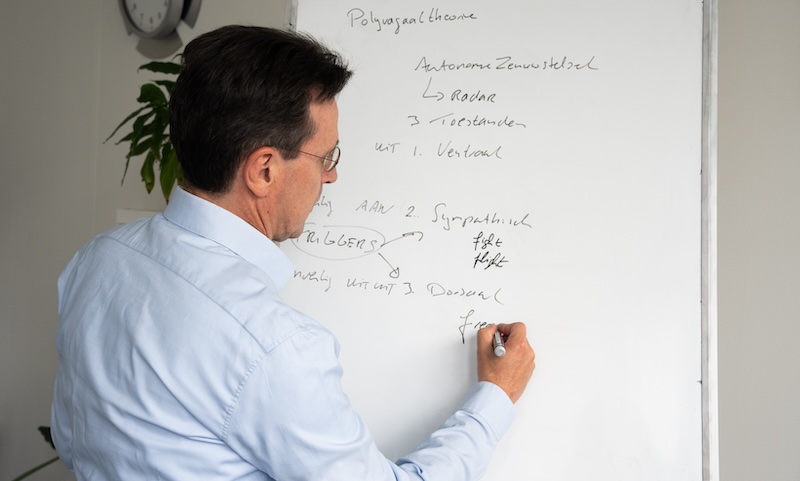 Polyvagaaltheorie
Autonome Zenuwstelsel
↳ Radar
3 Toestanden
UIT 1. Ventraal
AAN 2. Sympathisch
TRIGGERS
fight
flight
UIT 3. Dorsaal